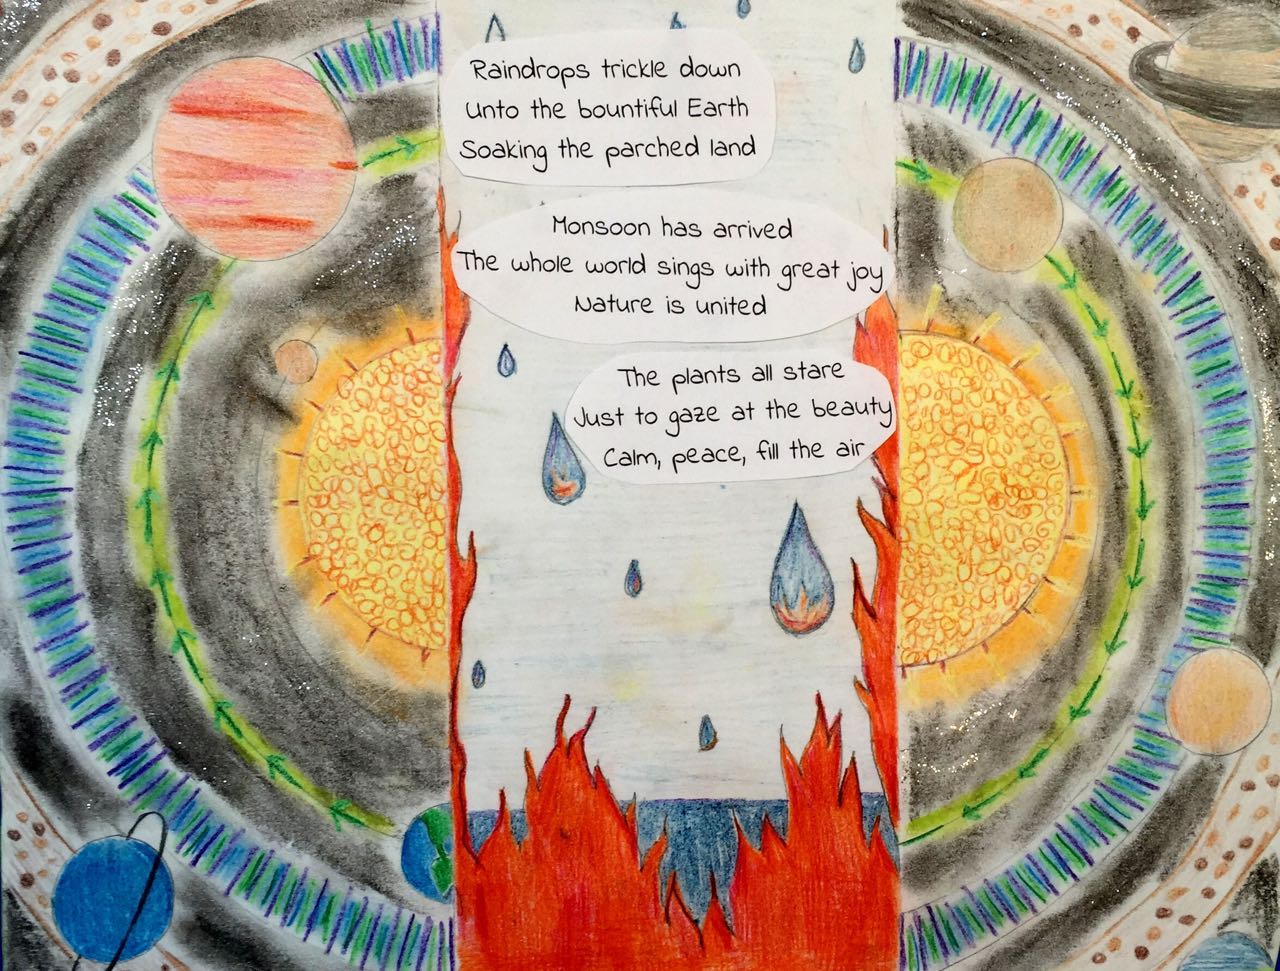 Raindrops trickle down
Unto the bountiful Earth
Soaking the parched land
Monsoon has arrived
The whole world sings with great joy
Nature is united
The plants all stare
Just to gaze at the beauty
Calm, peace, fill the air